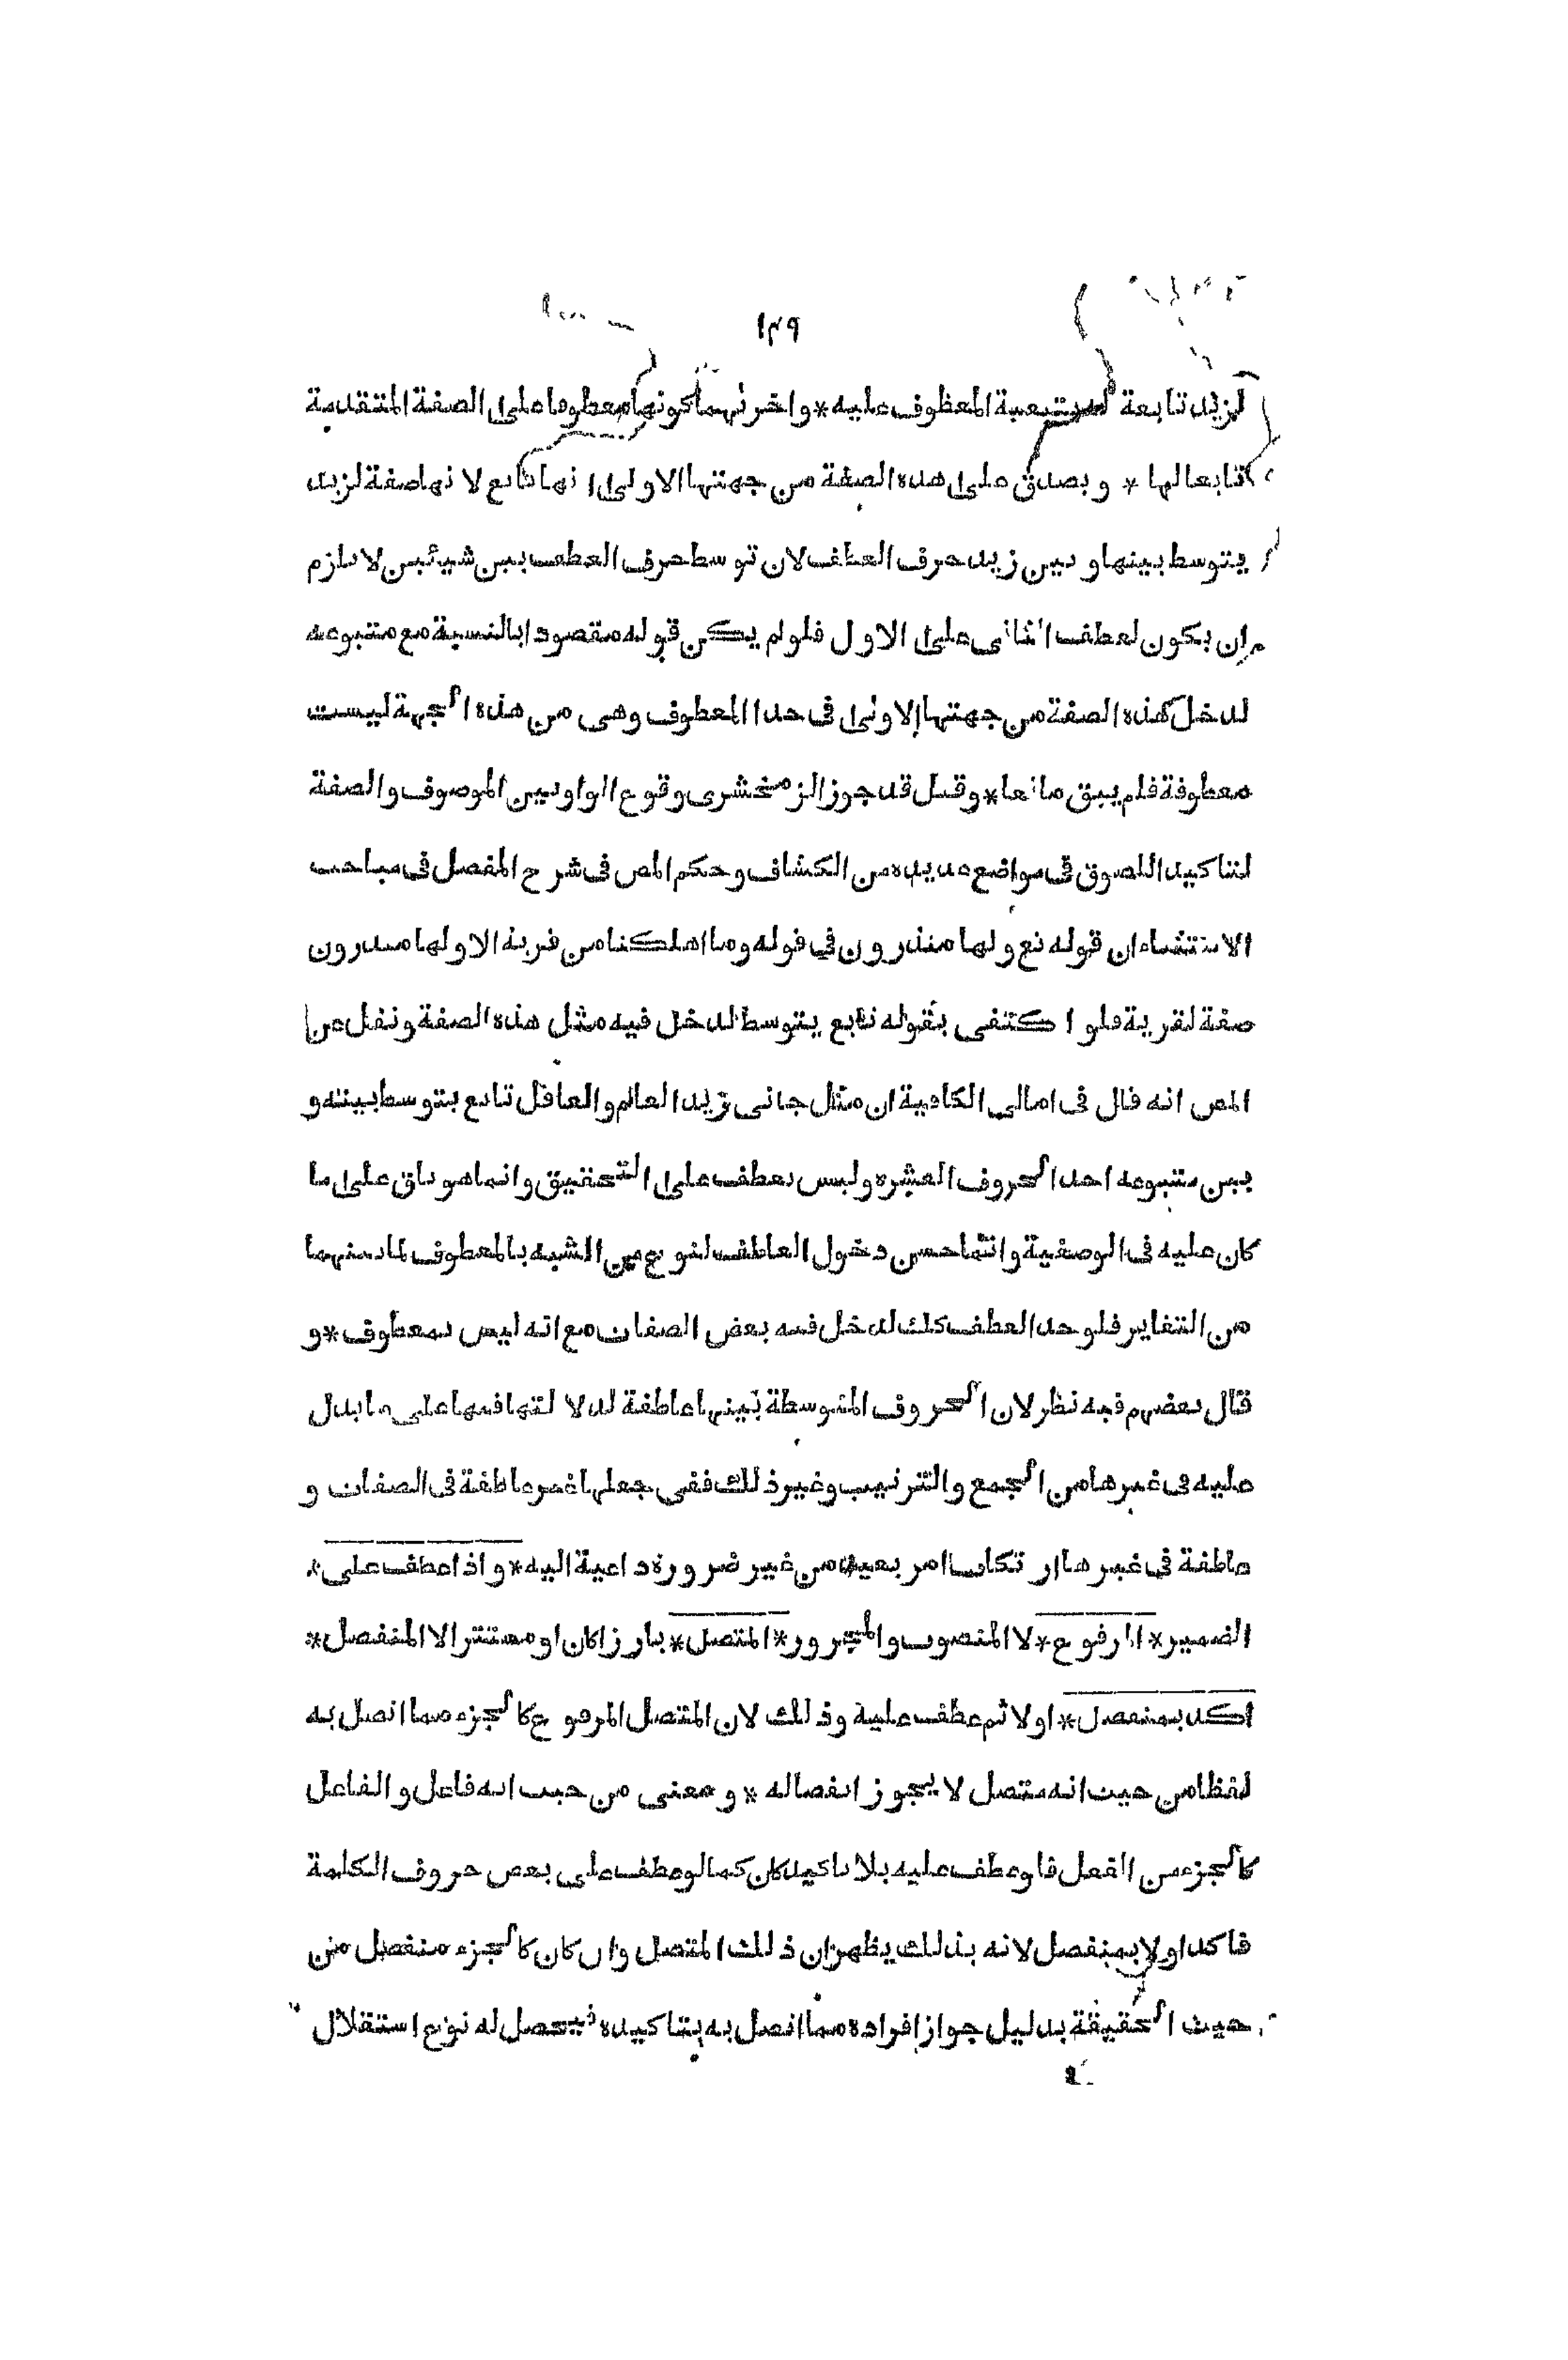 ١٢٩
لزيد تابعة له بتبعية المعطوف عليه * واخرىهما كونها معطوفا على الصفة المتقدمة
تابعا لها * ويصدق على هذه الصفة من جهتها الاولى انها تابع لانها صفة لزيد
يتوسط بينها وبين زيد حرف العاطف لان توسط حرف العطف بين شيئين لا يلزم
ان يكون لعطف الثانى على الاول فلو لم يكن قوله مقصودا بالنسبة مع متبوعه
لدخل هذه الصفة من جهتها الاولى فى حد المعطوف وهى من هذه الجهة ليست
معطوفة فلم يبق مانعا * وقيل قد جوز الزمخشرى وقوع الواو بين الموصوف والصفة
لتاكيد اللصوق فى مواضع عديده من الكشاف وحكم المص فى شرح المفصل فى مباحث
الاستثناء ان قوله تع ولها منذرون فى قوله وما اهلكنا من قرية الا ولها منذرون
صفة لقرية فلو اكتفى بقوله تابع يتوسط لدخل فيه مثل هذه الصفة ونقل عن
المص انه قال فى امالى الكافية ان مثل جانى زيد العالم والعاقل تابع يتوسط بينه و
بين متبوعه احد الحروف العشره وليس بعطف على التحقيق وانما هو باق على ما
كان عليه فى الوصفية وانما حسن دخول العاطف لنوع من الشبه بالمعطوف لما بينهما
من التغاير فلو حد العطف كذلك لدخل فيه بعض الصفات مع انه ليس بمعطوف * و
قال بعضهم فيه نظر لان الحروف المتوسطة بينها عاطفة لدلالتها فيها على ما يدل
عليه فى غيرها من الجمع والترتيب وغير ذلك ففى جعلها غير عاطفة فى الصفات و
عاطفة فى غيرها ارتكاب امر بعيد من غير ضرورة داعية اليه * واذا عطف على *
الضمير * المرفوع * لا المنصوب والمجرور * المتصل * بارزا كان او مستترا لا المنفصل *
اكد بمنفصل * اولا ثم عطف عليه وذلك لان المتصل المرفوع كالجزء مما اتصل به
لفظا من حيث انه متصل لا يجوز انفصاله * ومعنى من حيث انه فاعل والفاعل
كالجزء من الفعل فلو عطف عليه بلا تاكيد كان كما لو عطف على بعض حروف الكلمة
فاكد اولا بمنفصل لانه بذلك يظهر ان ذلك المتصل وان كان كالجزء منفصل من
حيث الحقيقة بدليل جواز افراده مما اتصل به بتاكيده فيحصل له نوع استقلال